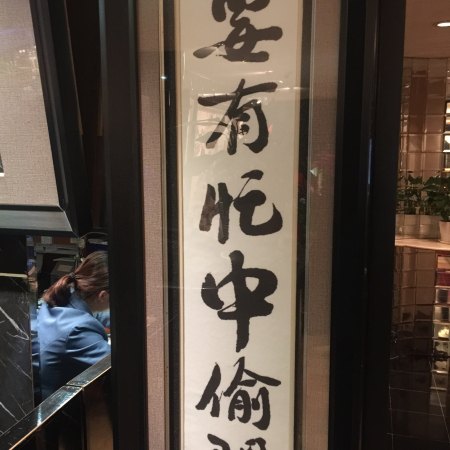 要有忙中偷